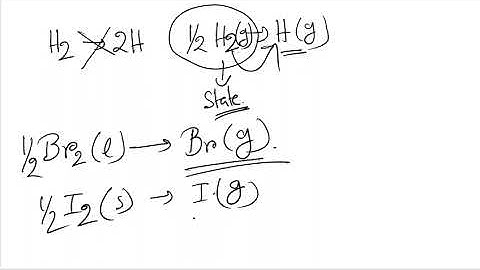 H2 → 2H
½ H2(g) → H(g)
State
½Br2(l) → Br(g).
½I2(s) → I(g)